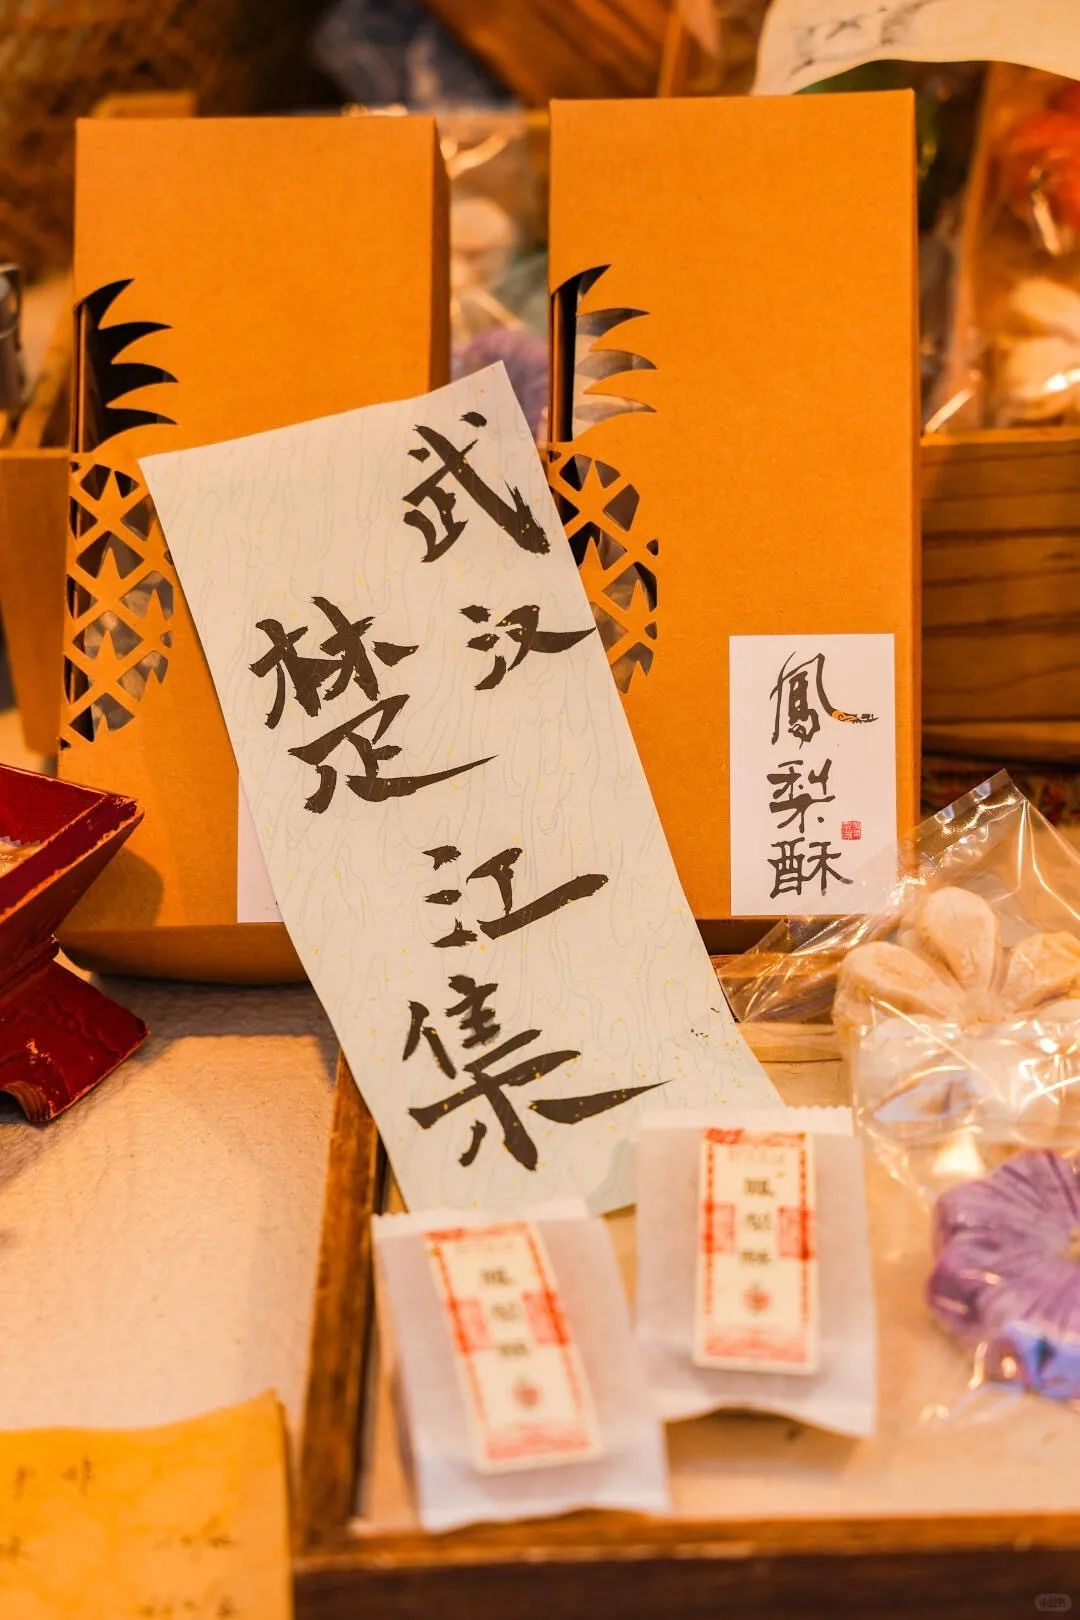 武汉
楚江集
鳳梨酥
鳳梨酥
鳳梨酥
小红书